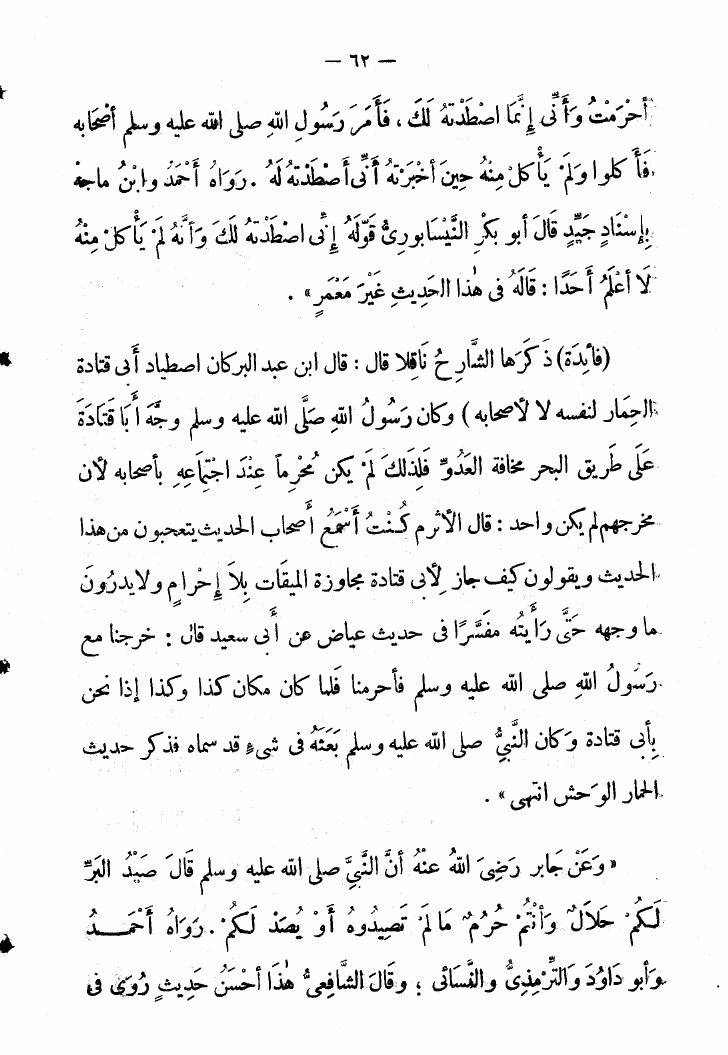 — ٦٢ —
أَحْرَمْتُ وَأَنِّى إِنَّمَا اصْطَدْتهُ لَكَ ، فَأَمَرَ رَسُولِ اللهِ صلى الله عليه وسلم أصْحَابه
فَأَ كلوا وَلَمْ يَأْكلْ مِنْهُ حِينَ أَخْبَرْتهُ أَنِّى أصْطَدْتهُ لَهُ . رَوَاهُ أَحْمَدُ وابْنُ ماجه
بِإِسْنَادٍ جَيِّدٍ قَالَ أبو بَكْرٍ النَّيْسَابورِىُّ قَوْلَهُ إِنِّى اصْطَدْتهُ لَكَ وَأَنَّهُ لَمْ يَأْكلْ مِنْهُ
لَا أعْلَمُ أحَدًا : قَالَهُ فى هٰذا الحَدِيثِ غَيْرَ مَعْمَرٍ» .
(فائِدَة) ذَ كَرَها الشَّارِحُ نَاقِلا قال : قال ابن عبد البر كان اصطياد أَبى قتادة
الحِمَار لنفسه لا لأصحابه ) وكان رَسُولُ اللهِ صَلَّى الله عليه وسلم وجَّهَ أَبَا قَتَادَةَ
عَلَى طَرِيقِ البحرِ مخافة العَدُوِّ فَلِذَلكَ لَمْ يكن مُحْرِماً عِنْدَ اجْتِمَاعِهِ بأصحابه لأن
مخرجهم لم يكن واحد : قال الأثرم كُنْتُ أَسْمَعُ أَصحاب الحديث يتعجبون من هذا
الحديث ويقولون كيف جاز لِأبى قتادة مجاوزة الميقَات بِلَا إِحْرامٍ ولا يدرُونَ
ما وجهه حَتَّى رَأَيتُه مفَسَّرًا فى حديث عياض عن أَبى سعيد قال : خرجنا مع
رَسُولُ اللهِ صلى الله عليه وسلم فأحرمنا فلما كان مكان كذا وكذا إذا نحن
بِأبى قتادة وَكان النَّبىُّ صلى الله عليه وسلم بَعَثَهُ فى شىءٍ قد سماه فذكر حديث
الحمار الوَحش انتهى» .
«وَعَنْ جَابر رَضِىَ اللهُ عنْهُ أنَّ النَّبىَّ صلى الله عليه وسلم قَالَ صَيْدُ البَرِّ
لَكُمْ حَلَالٌ وَأَنْتُمْ حُرُمٌ مَا لَمْ تَصِيدُوهُ أَوْ يُصَدْ لَكُمْ . رَوَاهُ أَحْمَـــدُ
وَأبو دَاوُدَ وَالتِّرْمِذِىُّ والنَّسَائى ؛ وقَالَ الشَّافِعىُّ هٰذَا أحْسَنُ حَدِيثٍ رُوِىَ فى